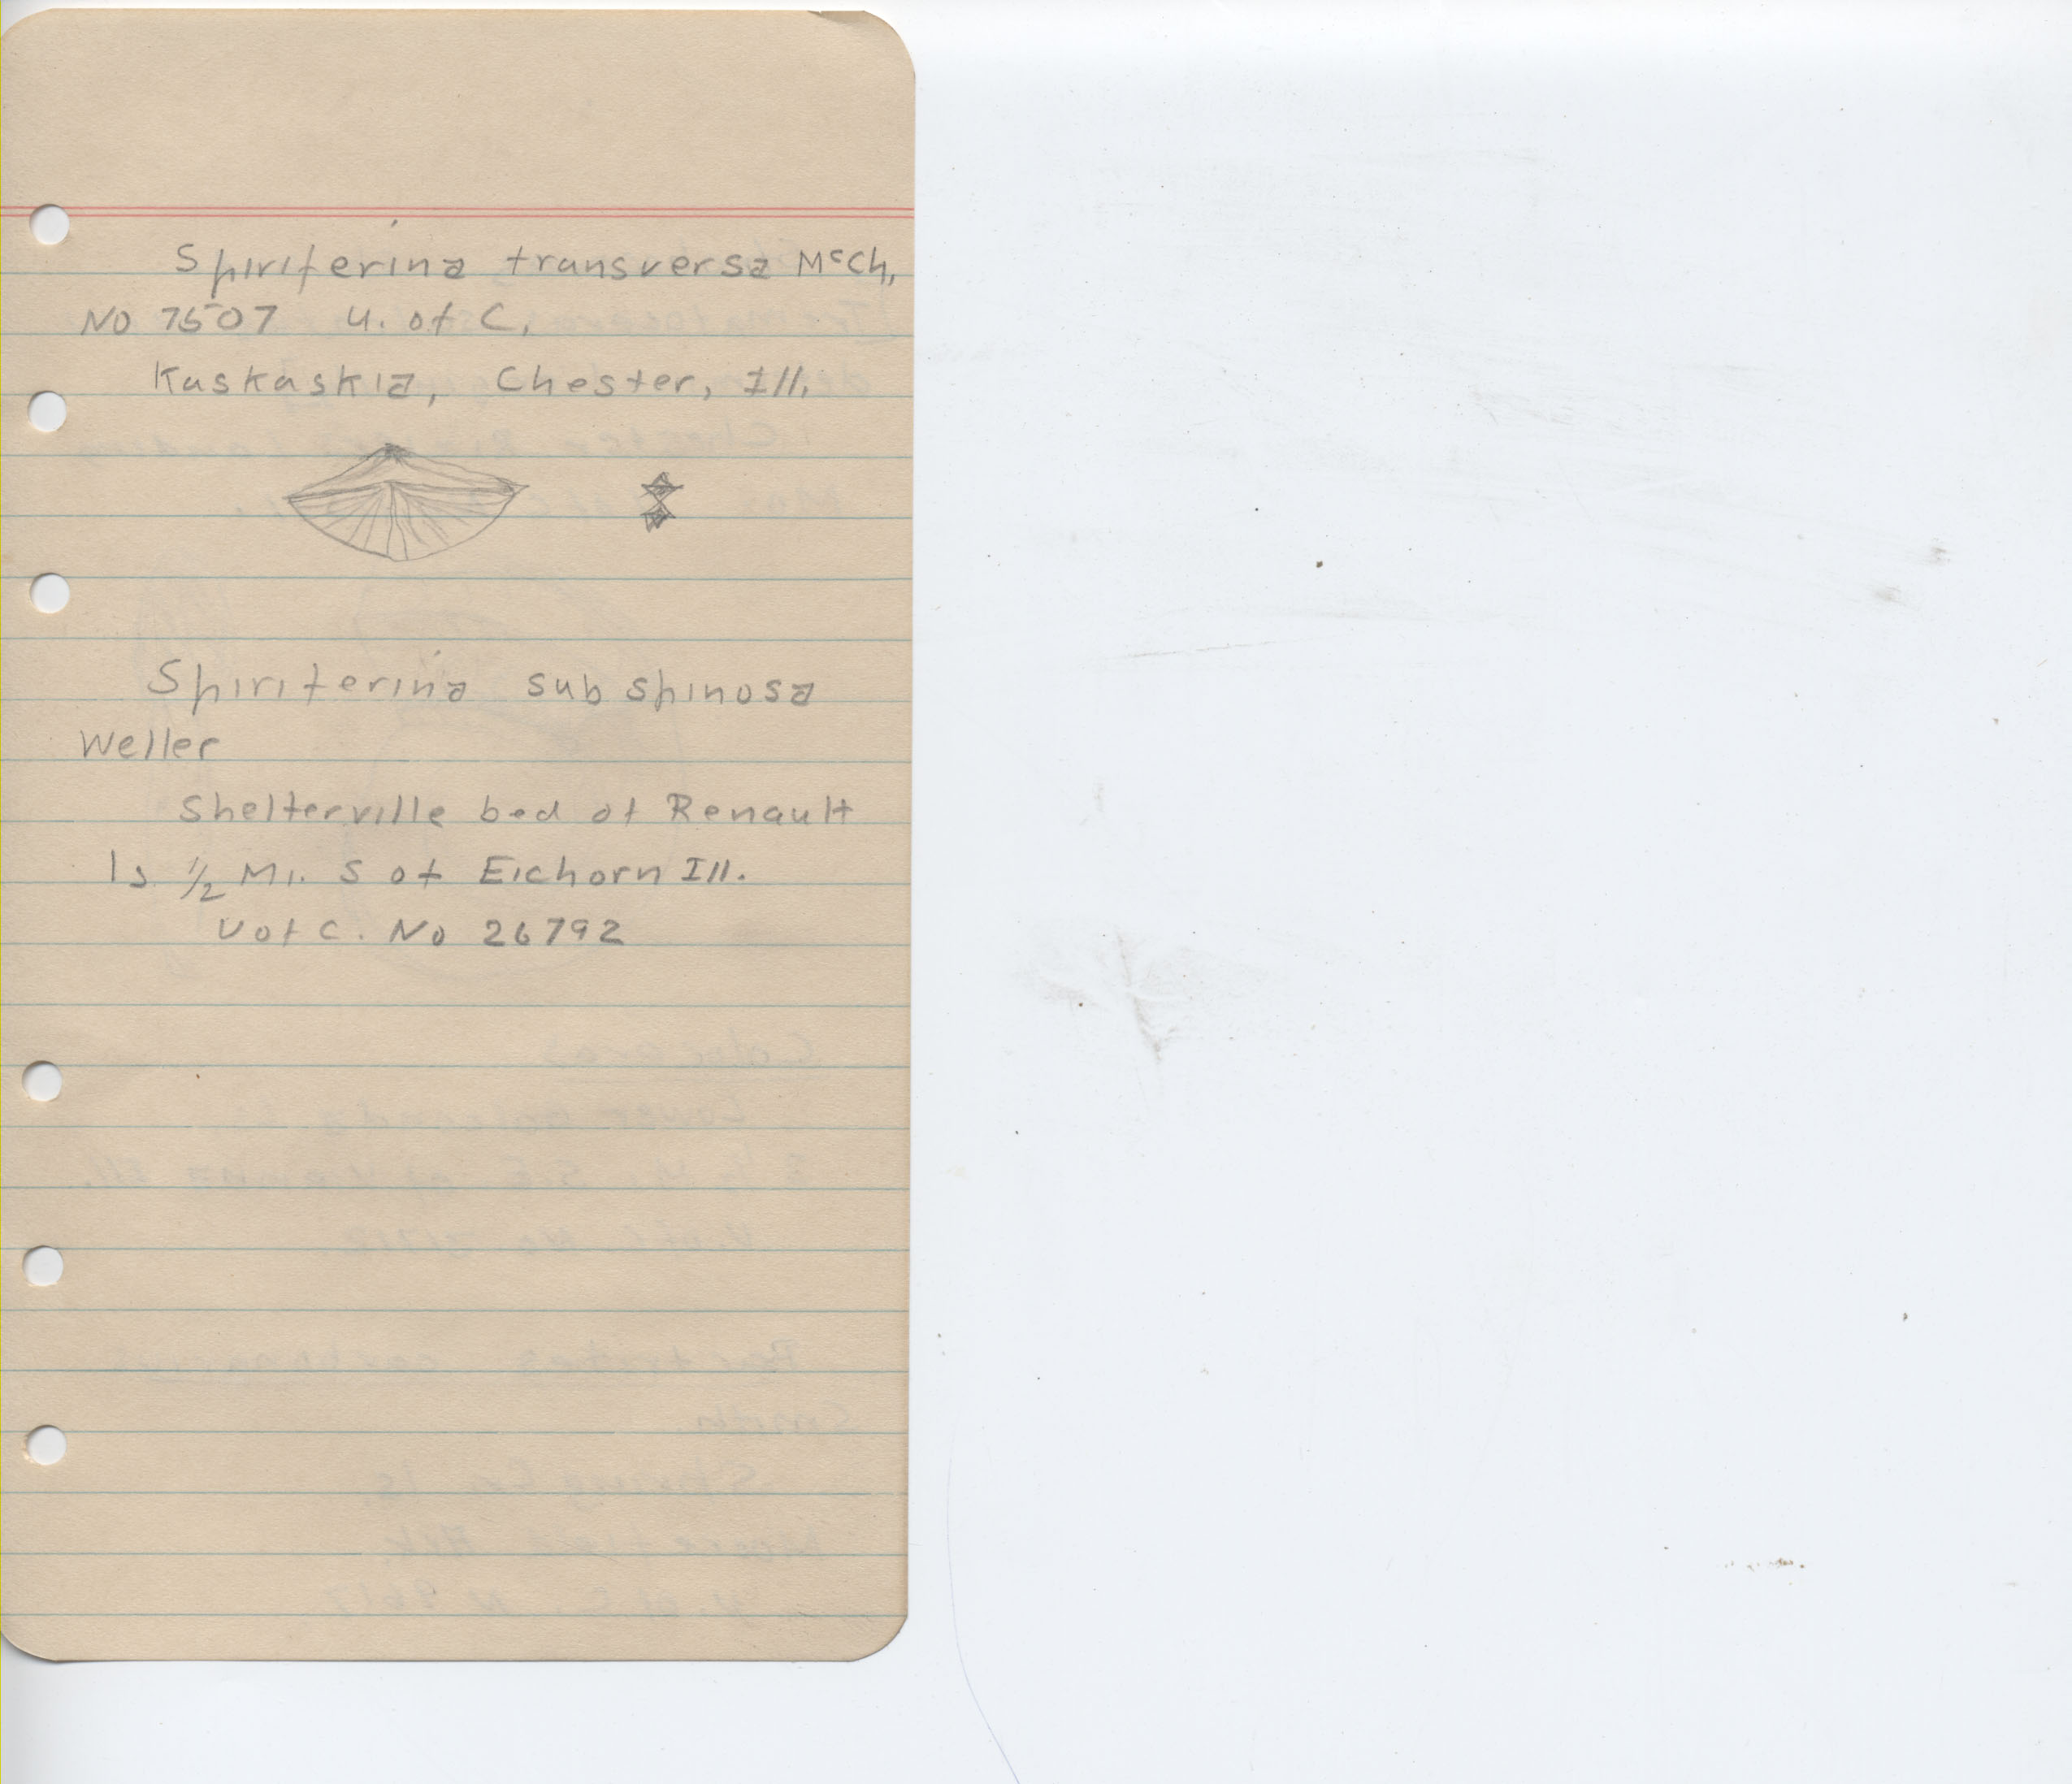 Spiriferina transversa McCh,
No 7507 U. of C,
Kaskaskia, Chester, Ill.
Spiriferina subspinosa
Weller
Shelterville bed of Renault
ls ½ Mi. S of Eichorn Ill.
U of C. No 26792